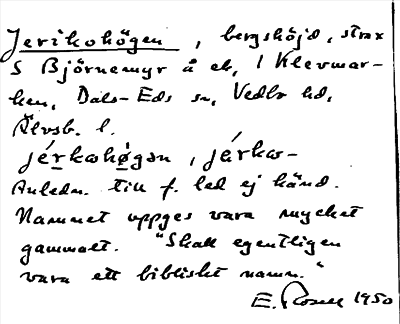 Jerikohögen, bergshöjd, strax
S Björnemyr å ek, i Klevmar-
ken, Dals-Eds sn, Vedbo hd,
Älvsb. l.
jér̲kwhø̲gən, jérkw-
Anledn. till f. led ej känd.
Namnet uppges vara mycket
gammalt. "Skall egentligen
vara ett bibliskt namn."
E. Rosell 1950